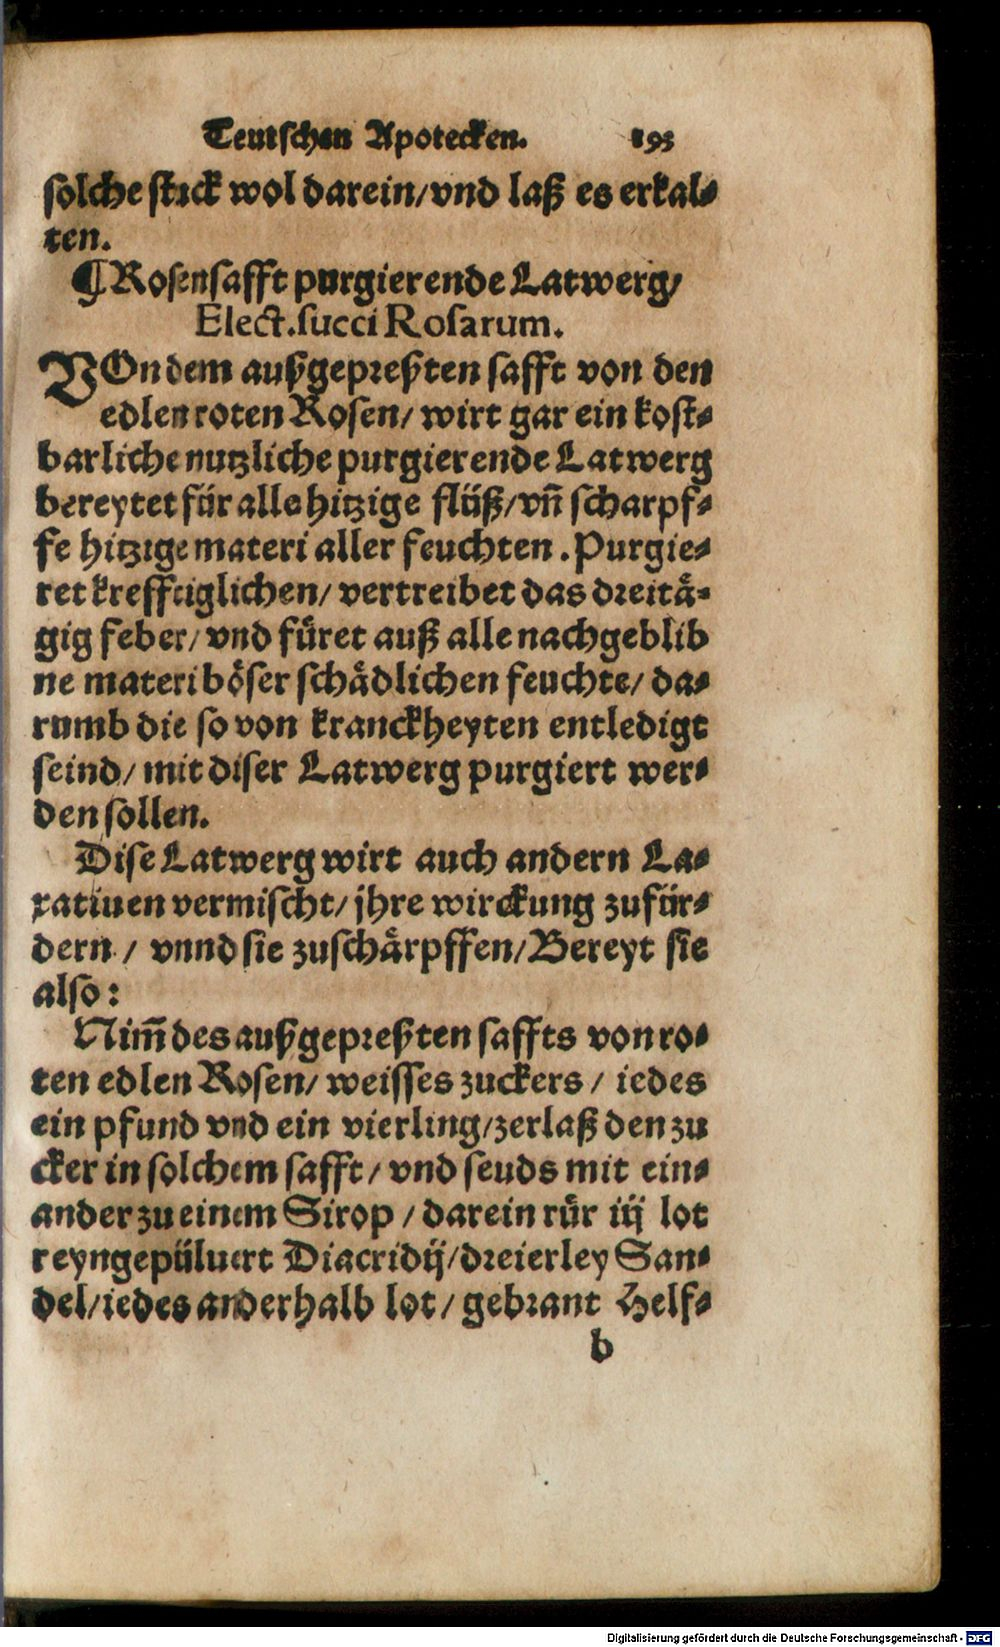 Teutschen Apotecken. 193
solche stuck wol darein/vnd laß es erkal⸗
ten.
¶Rosensafft purgierende Latwerg/
Elect.succi Rosarum.
VOn dem außgepreßten safft von den
edlen roten Rosen/ wirt gar ein kost⸗
barliche nutzliche purgierende Latwerg
bereytet für alle hitzige flüß/vñ scharpf⸗
fe hitzige materi aller feuchten. Purgie⸗
ret krefftiglichen/ vertreibet das dreitä⸗
gig feber/ vnd füret auß alle nachgeblib
ne materi böser schädlichen feuchte/ da⸗
rumb die so von kranckheyten entledigt
seind/ mit diser Latwerg purgiert wer⸗
den sollen.
Dise Latwerg wirt auch andern La⸗
xatiuen vermischt/ jhre wirckung zufür⸗
dern/ vnnd sie zuschärpffen/Bereyt sie
also:
Nim̃ des außgepreßten saffts von ro⸗
ten edlen Rosen/ weisses zuckers/ iedes
ein pfund vnd ein vierling/zerlaß den zu
cker in solchem safft/ vnd seuds mit ein⸗
ander zu einem Sirop/ darein rür iij lot
reyngepüluert Diacridij/dreierley San⸗
del/iedes anderhalb lot/ gebrant Helf⸗
b
Digitalisierung gefördert durch die Deutsche Forschungsgemeinschaft - DFG